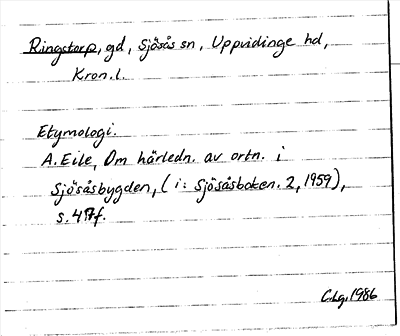 Ringstorp, gd, Sjösås sn, Uppvidinge hd,
Kron.l.
Etymologi.
A. Eile, Om härledn. av ortn. i
Sjösåsbygden, (i: Sjösåsboken. 2, 1959),
s. 47f.
C.Lg. 1986